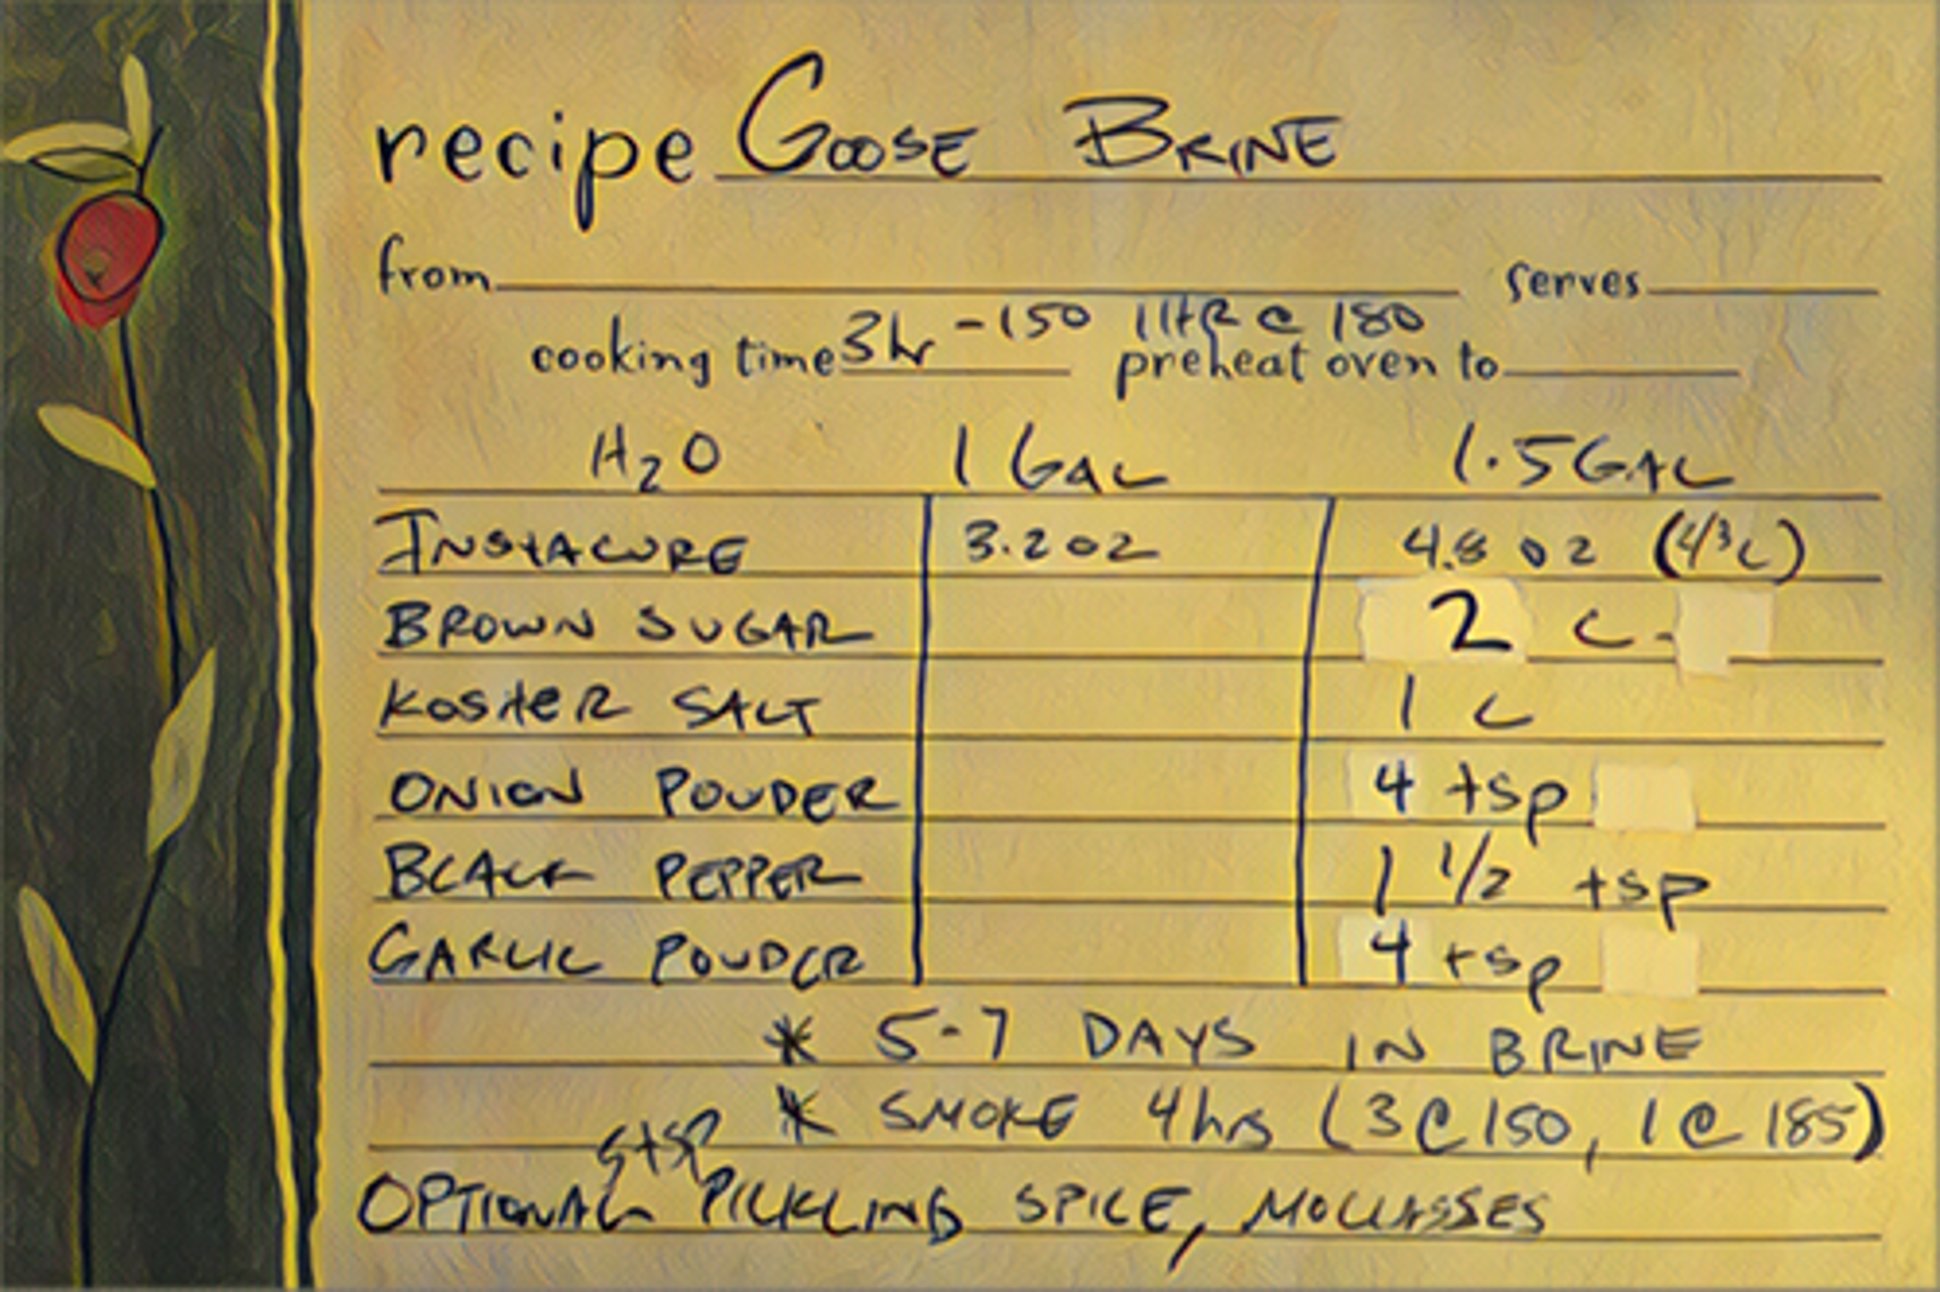 recipe GOOSE BRINE
from serves
cooking time 3hr -150 1HR @ 180 preheat oven to
H2O 1 GAL 1.5 GAL
INSTACURE 3.2 oz 4.8 oz (4/3 C)
BROWN SUGAR 2 C -
KOSHER SALT 1 C
ONION POWDER 4 tsp
BLACK PEPPER 1 1/2 tsp
GARLIC POWDER 4 tsp
* 5-7 DAYS IN BRINE
* SMOKE 4hrs (3 @ 150, 1 @ 185)
5 tsp
OPTIONAL PICKLING SPICE, MOLLASSES